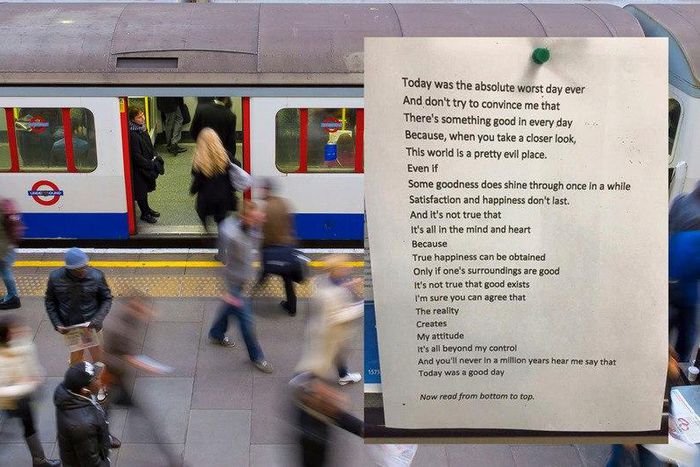 UNDERGROUND
Today was the absolute worst day ever
And don't try to convince me that
There's something good in every day
Because, when you take a closer look,
This world is a pretty evil place.
Even if
Some goodness does shine through once in a while
Satisfaction and happiness don't last.
And it's not true that
It's all in the mind and heart
Because
True happiness can be obtained
Only if one's surroundings are good
It's not true that good exists
I'm sure you can agree that
The reality
Creates
My attitude
It's all beyond my control
And you'll never in a million years hear me say that
Today was a good day
Now read from bottom to top.